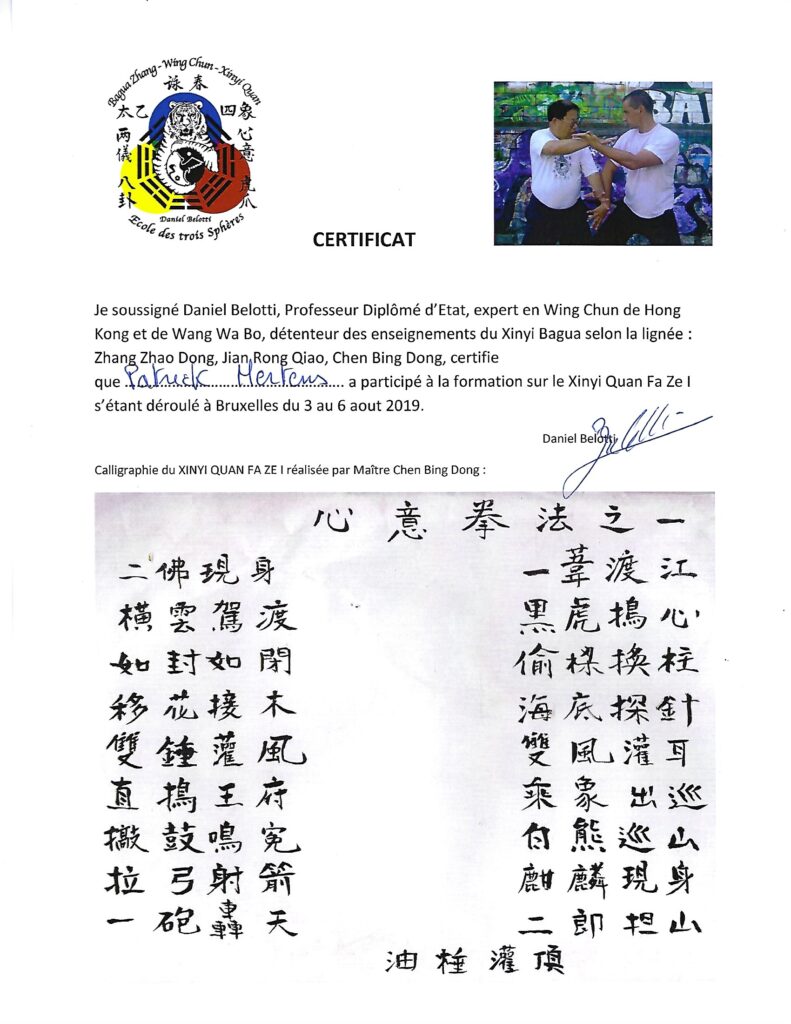 Bagua Zhang - Wing Chun - Xinyi Quan
詠春
太乙 四象
两儀 心意
八卦 虎爪
Daniel Belotti
Ecole des trois Sphères
CERTIFICAT
Je soussigné Daniel Belotti, Professeur Diplômé d’Etat, expert en Wing Chun de Hong
Kong et de Wang Wa Bo, détenteur des enseignements du Xinyi Bagua selon la lignée :
Zhang Zhao Dong, Jian Rong Qiao, Chen Bing Dong, certifie
que Patrick Mertens a participé à la formation sur le Xinyi Quan Fa Ze I
s’étant déroulé à Bruxelles du 3 au 6 aout 2019.
Daniel Belotti
Calligraphie du XINYI QUAN FA ZE I réalisée par Maître Chen Bing Dong :
心意拳法之一
二佛現身 一葦渡江
橫雲駕渡 黑虎搗心
如封如閉 偷樑換柱
移花接木 海底探針
雙錘灌風 雙風灌耳
直搗王府 乘象出巡
擻鼓鳴冤 白熊巡山
拉弓射箭 麒麟現身
一砲轟天 二郎担山
油棰灌頂